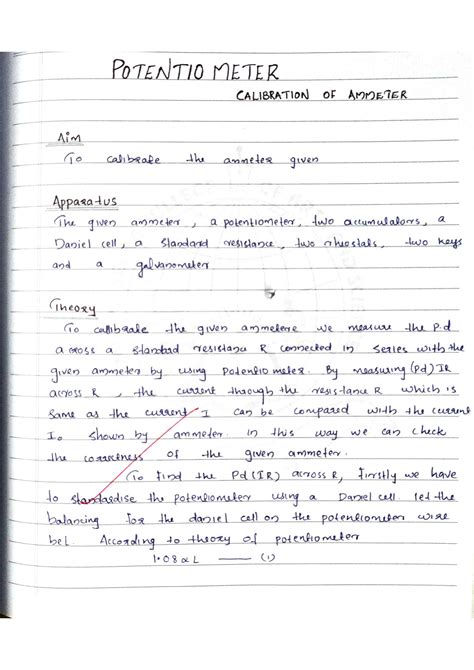 POTENTIO METER
CALIBRATION OF AMMETER
Aim
To calibrate the ammeter given
Apparatus
The given ammeter, a potentiometer, two accumulators, a
Daniel cell, a standard resistance, two rheostats, two keys
and a galvanometer
Theory
To calibrate the given ammetere we measure the P.d
a cross a standard resistance R connected in series with the
given ammeter by using Potentio meter. By measuring (Pd) IR
across R, the current through the resis-tance R which is
same as the current I can be compared with the current
I₀ shown by ammeter. in this way we can check
the correctness of the given ammeter.
To find the Pd (IR) across R, firstly we have
to standardise the potentiometer using a Daniel cell. let the
balancing for the daniel cell on the potentiometer wire
be l. According to theory of potentiometer
1.08 α L —— (1)